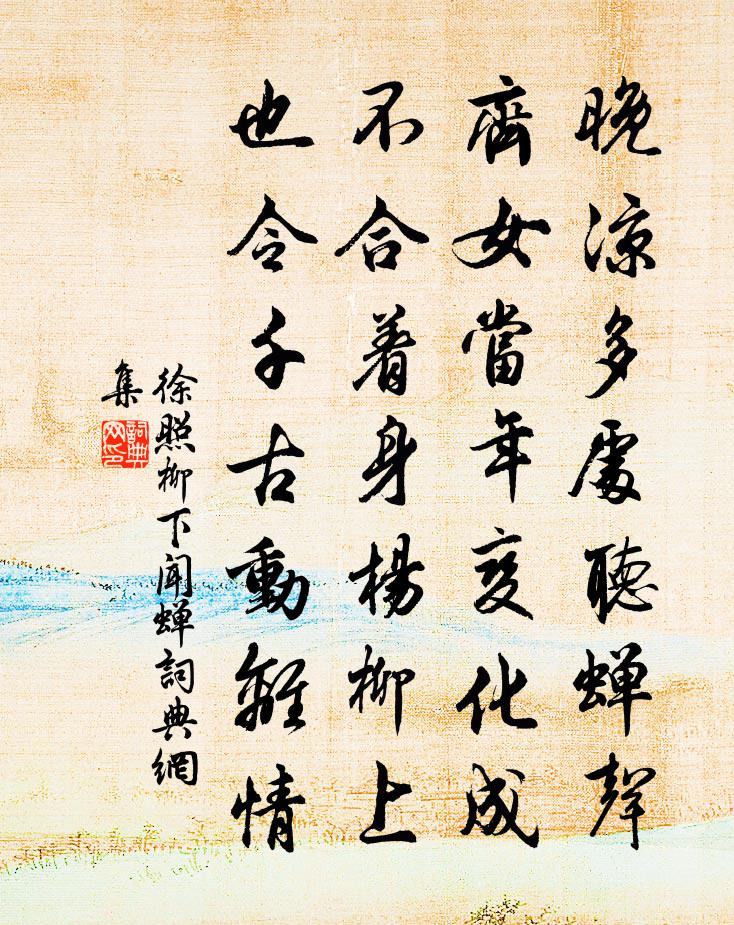 晚涼多處聽蟬聲
齊女當年變化成
不合着身楊柳上
也令千古動離情
徐照柳下聞蟬詞典網
集
詞典
网印